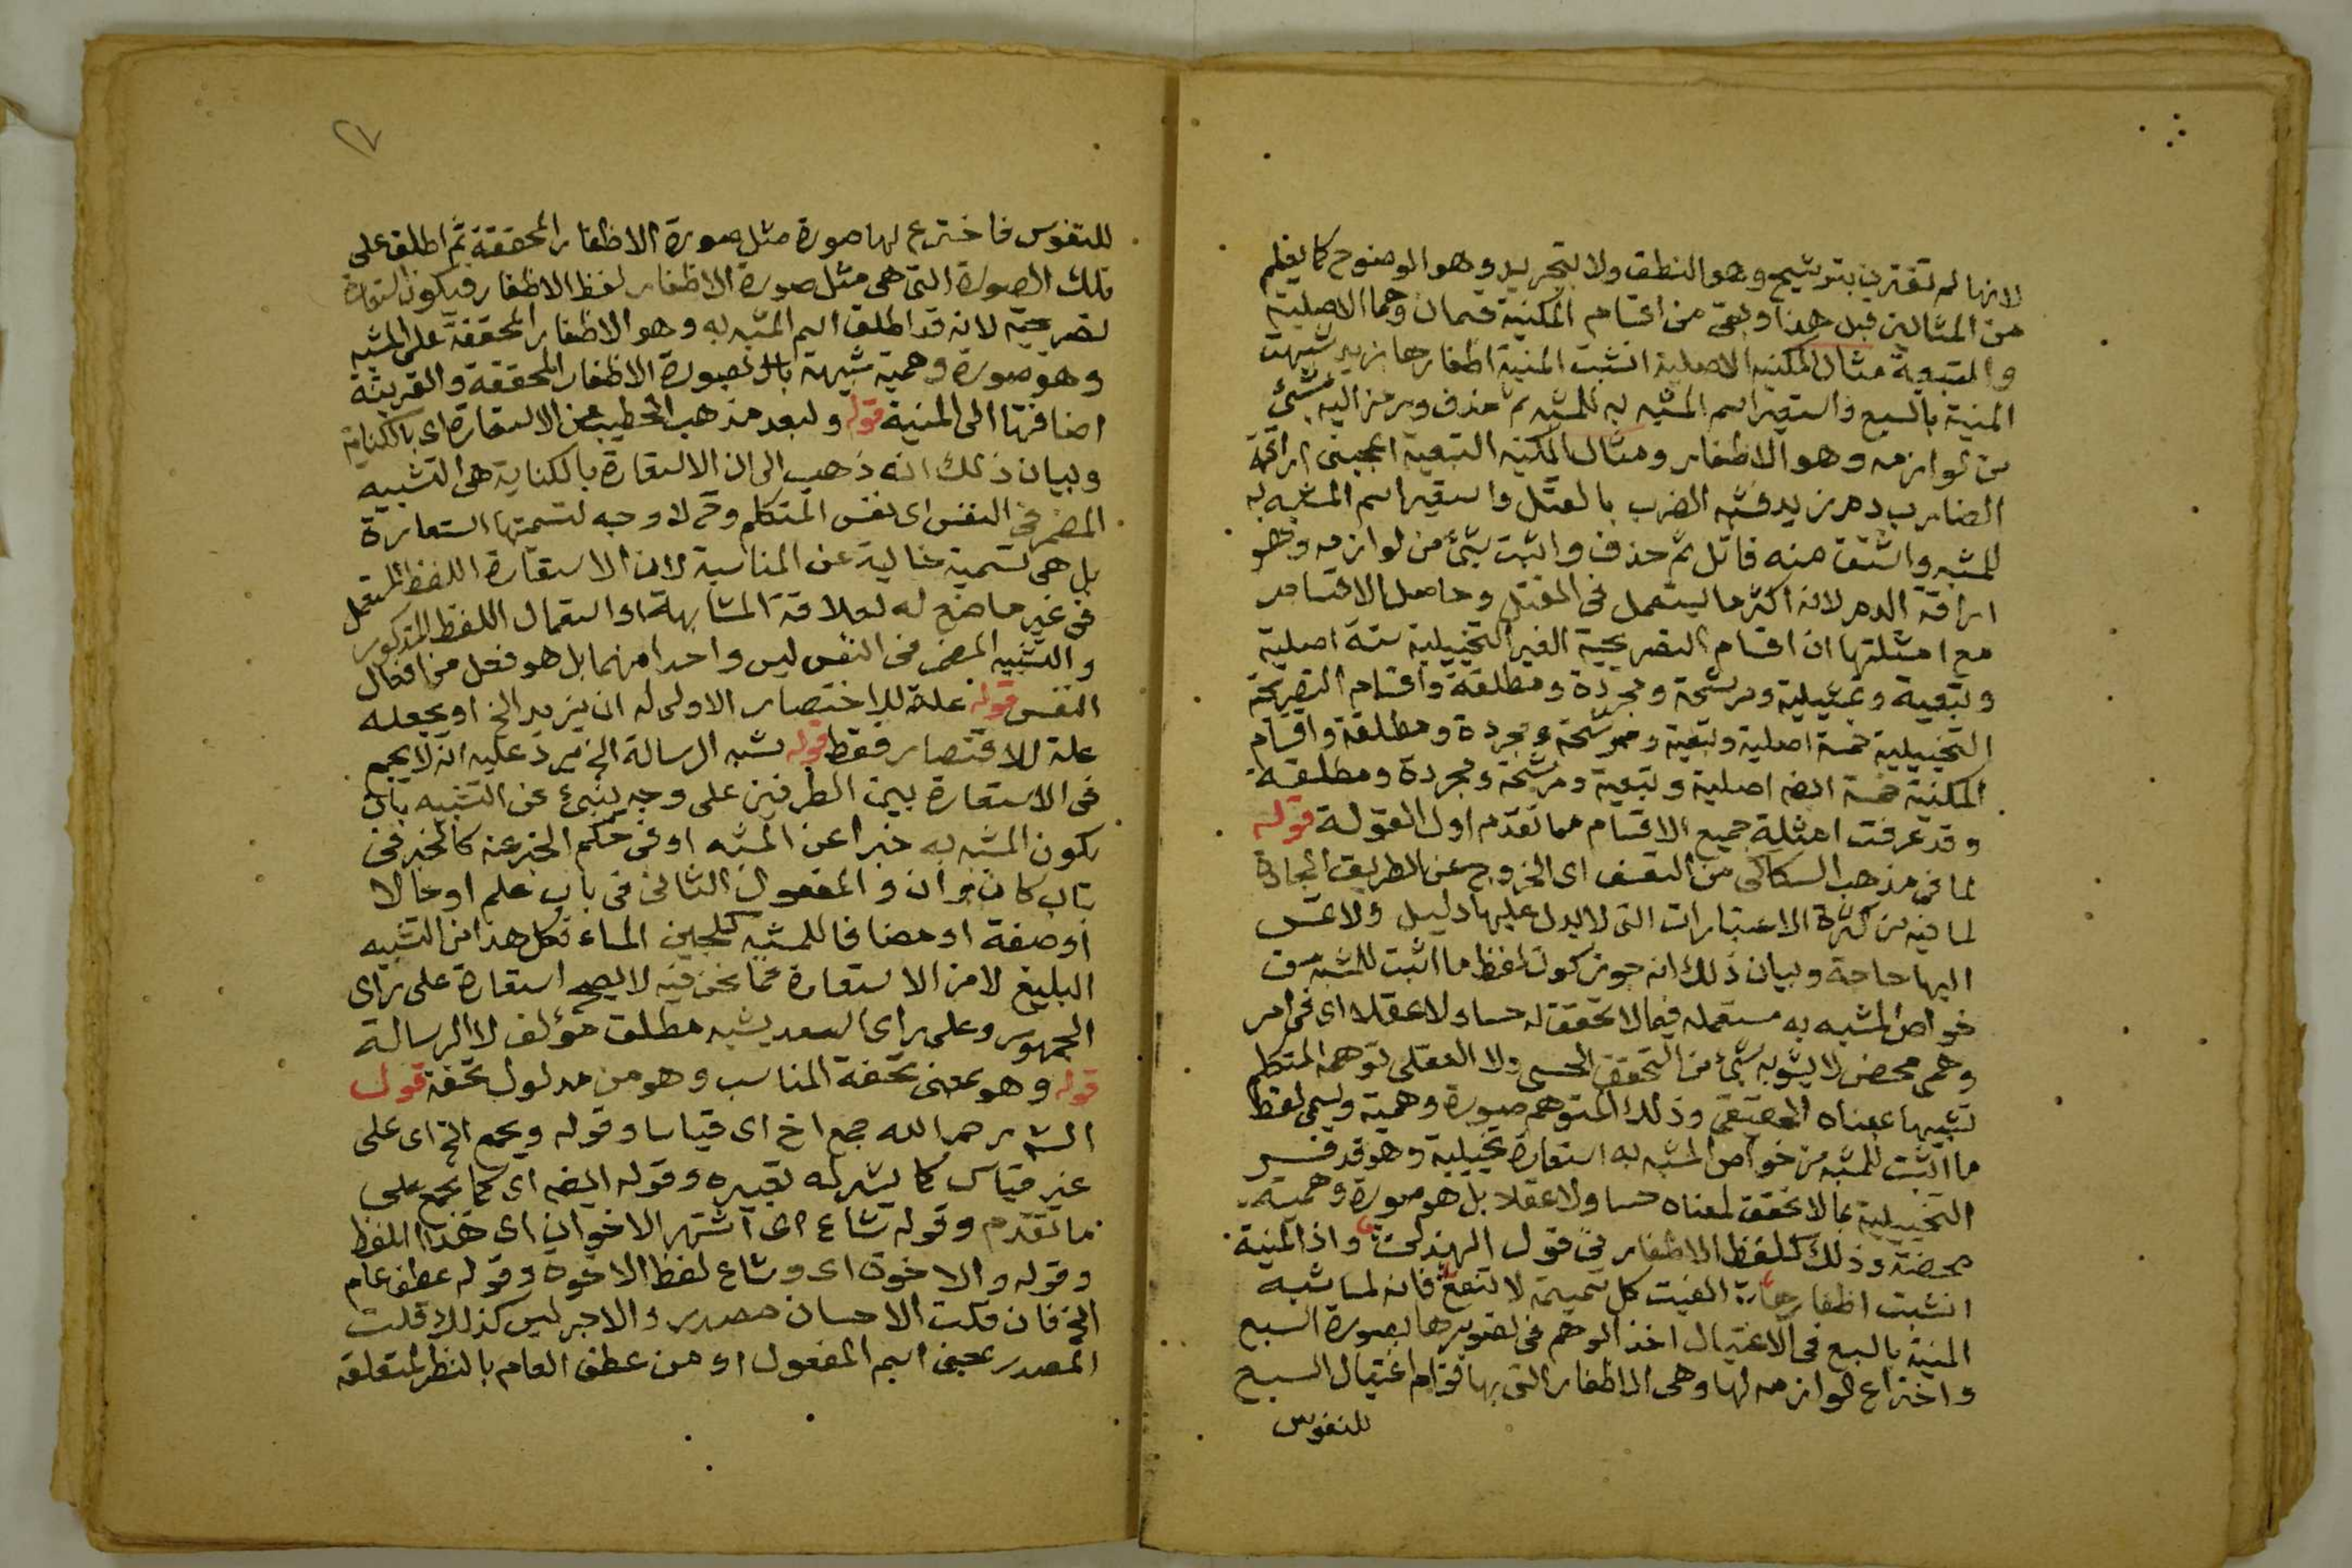 لانها لم تقترن بترشيح وهو النطق ولا بتجريد وهو الوضوح كما يعلم
من المثالين قبل هذا وبقى من اقسام المكنية قسمان وهما الاصلية
والتبعية مثال المكنية الاصلية انشبت المنية اظفارها بزيد شبهت
المنية بالسبع واستعير اسم المشبه به للمشبه ثم حذف ورمز اليه بشئ
من لوازمه وهو الاظفار ومثال المكنية التبعية اعجبنى اراقة
الضارب دم زيد فشبه الضرب بالقتل واستعير اسم المشبه به
للمشبه واشتق منه قاتل ثم حذف واثبت بشئ من لوازمه وهو
اراقة الدم لانه اكثر ما يستعمل فى القتل وحاصل الاقسام
مع امثلتها ان اقسام التصريحية الغير التخييلية ستة اصلية
وتبعية وتمثيلية ومرشحة ومجردة ومطلقة واقسام التصريحية
التخييلية خمسة اصلية وتبعية ومرشحة ومجردة ومطلقة واقسام
المكنية خمسة ايضا اصلية وتبعية ومرشحة ومجردة ومطلقة
وقد عرفت امثلة جميع الاقسام مما تقدم اول القولة قوله
لما فى مذهب السكاكى من التعسف اى الخروج عن الطريق الجادة
لما فيه من كثرة الاعتبارات التى لا يدل عليها دليل ولا تمس
اليها حاجة وبيان ذلك انه جوز كون لفظ ما اثبت للمشبه من
خواص المشبه به مستعمله فيما لا تحقق له حسا ولا عقلا اى فى امر
وهمى محض لا يشوبه شئ من التحقق الحسى ولا العقلى توهمه المتكلم
تشبيها بمعناه الحقيقى وذلك المتوهم صورة وهمية ويسمى لفظ
ما اثبت للمشبه من خواص المشبه به استعارة تخييلية وهو قد فسر
التخييلية بما لا تحقق لمعناه حسا ولا عقلا بل هو صورة وهمية
محضة وذلك كلفظ الاظفار فى قول الهذلى واذا المنية
انشبت اظفارها الفيت كل تميمة لا تنفع فانه لما شبه
المنية بالسبع فى الاغتيال اخذ الوهم فى تصويرها بصورة السبع
واختراع لوازمه لها وهى الاظفار التى بها قوام اغتيال السبع
للنفوس
للنفوس فاخترع لها صورة مثل صورة الاظفار المحققة ثم اطلق على
تلك الصورة التى هى مثل صورة الاظفار لفظ الاظفار فيكون استعارة
تصريحية لانه قد اطلق اسم المشبه به وهو الاظفار المحققة على المشبه
وهو صورة وهمية شبيهة بصورة الاظفار المحققة والقرينة
اضافتها الى المنية قوله ولبعد مذهب الخطيب من الاستعارة اى بالكناية
وبيان ذلك انه ذهب الى ان الاستعارة بالكناية هى التشبيه
المضمر فى النفس اى نفس المتكلم وح لا وجه لتسمتها استعارة
بل هى تسمية خالية عن المناسبة لان الاستعارة اللفظ المستعمل
فى غير ما ضع له لعلاقة المشابهة او استعمال اللفظ المذكور
والتشبيه المضمر فى النفس ليس واحدا منهما بل هو فعل من افعال
النفس قوله علة للاختصار الاولى له ان يزيد الخ او يجعله
علة للاقتصار فقط قوله شبه الرسالة الخ يرد عليه انه لا يجمع
فى الاستعارة بين الطرفين على وجه ينبئ عن التشبيه بان
يكون المشبه به خبرا عن المشبه او فى حكم الخبر عنه كالخبر فى
باب كان وان والمفعول الثانى فى باب علم او حالا
او صفة او مضافا للمشبه كلجين الماء فكل هذا من التشبيه
البليغ لا من الاستعارة فما نحن فيه لا يصح استعارة على راى
الجمهور وعلى راى السعد يشبه مطلق مؤلف لا الرسالة
قوله وهو بمعنى تحفة المناسب وهو من مدلول تحفة قول
الش رحمه الله جمع اخ اى قياسا وقوله ويجمع الخ اى على
غير قياس كما يشير له تعبيره وقوله ايضا اى كما يجمع على
ما تقدم وقوله شاع اى اشتهر الاخوان اى هذا اللفظ
وقوله والاخوة اى وشاع لفظ الاخوة وقوله عطف عام
الخ فان قلت الاحسان مصدر والاجر ليس كذلك قلت
المصدر بمعنى اسم المفعول او من عطف العام بالنظر لمتعلقه